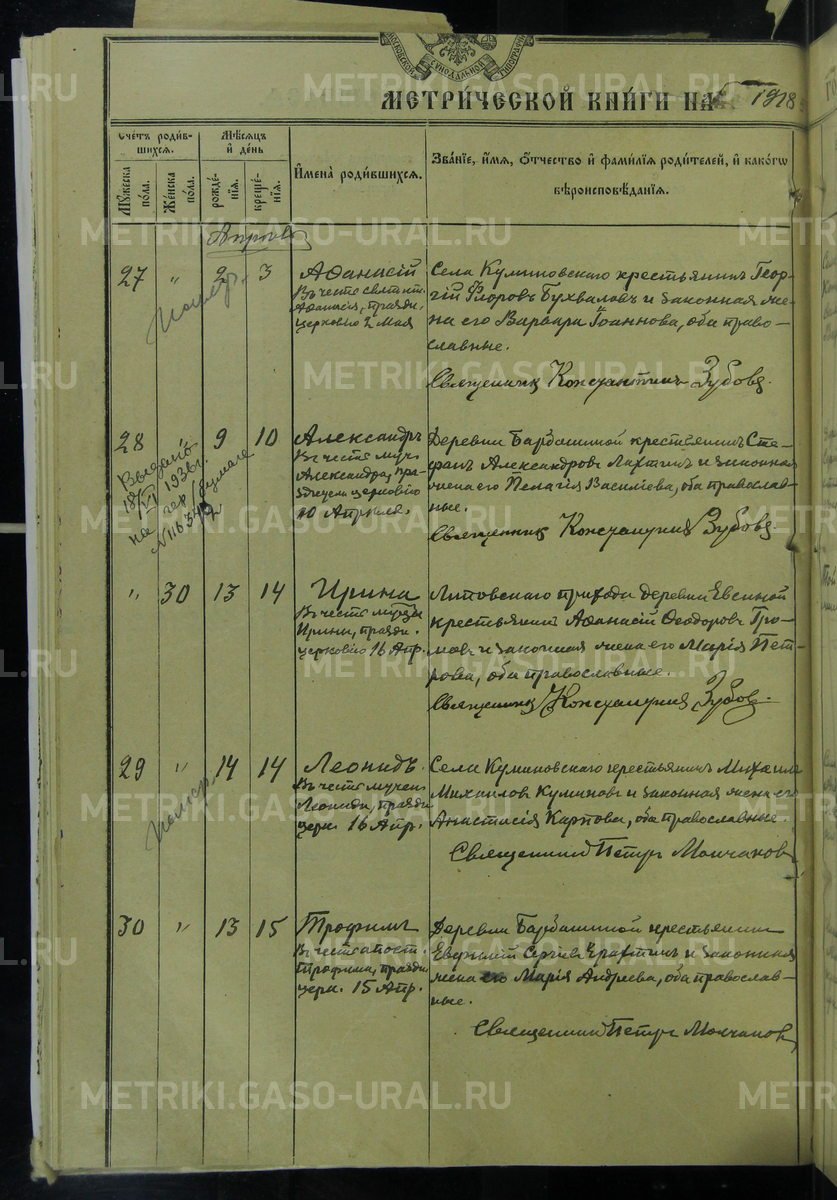 МОСКОВСКОЙ СѴНОДАЛЬНОЙ ТИПОГРАФІИ
МЕТРИ́ЧЕСКОЙ КНИ́ГИ НА 1918
Счетъ роди́в-
шихся.
Мѣ́сяцъ
и҆ де́нь
Мꙋжеска по́ла.
Же́нска по́ла.
рожде́-
нїя.
креще́-
нїя.
И҆мена̀ роди́вшихся.
Зва́нїе, и҆́мя, ѻ҆́тчество и҆ фами́лїя роди́телей, и҆ како́гѡ
вѣроисповѣ́данїя.
Апрѣль
27 " 2 3 Аѳанасій
Въ честь святит.
Аѳанасія, праздн.
церковію 2 Мая
Села Куминовскаго крестьянинъ Геор-
гій Флоровъ Бухваловъ и законная же-
на его Варвара Іоаннова, оба право-
славные.
Священникъ Константинъ Зубовъ.
Померъ.
28 9 10 Александръ
Въ честь муч.
Александра, пра-
зднуем. церковію
10 Апрѣля.
Деревни Барбашиной крестьянинъ Сте-
фанъ Александровъ Лахтинъ и законная
жена его Пелагія Василіева, оба православ-
ные.
Священникъ Константинъ Зубовъ.
Выданъ
18/VI 1936 г.
на гер. бумаге
N 116340
" 30 13 14 Ирина
Въ честь муч-цы
Ирины, праздн.
церковію 16 Апр.
Липовскаго прихода деревни Евсиной
крестьянинъ Аѳанасій Ѳеодоровъ Гро-
мовъ и законная жена его Марія Пет-
рова, оба православные.
Священникъ Константинъ Зубовъ.
29 " 14 14 Леонидъ.
Въ честь мучен.
Леонида, праздн.
церк. 16 Апр.
Села Куминовскаго крестьянинъ Михаилъ
Михаиловъ Куминовъ и законная жена его
Анастасія Карпова, оба православные.
Священникъ Петръ Молчановъ
Померъ.
30 " 13 15 Трофимъ
Въ честь апост.
Трофима, праздн.
церк. 15 Апр.
Деревни Барбашиной крестьянинъ
Евгеній Сергіевъ Лахтинъ и законная
жена его Марія Андреева, оба православ-
ные.
Священникъ Петръ Молчановъ
METRIKI.GASO-URAL.RU